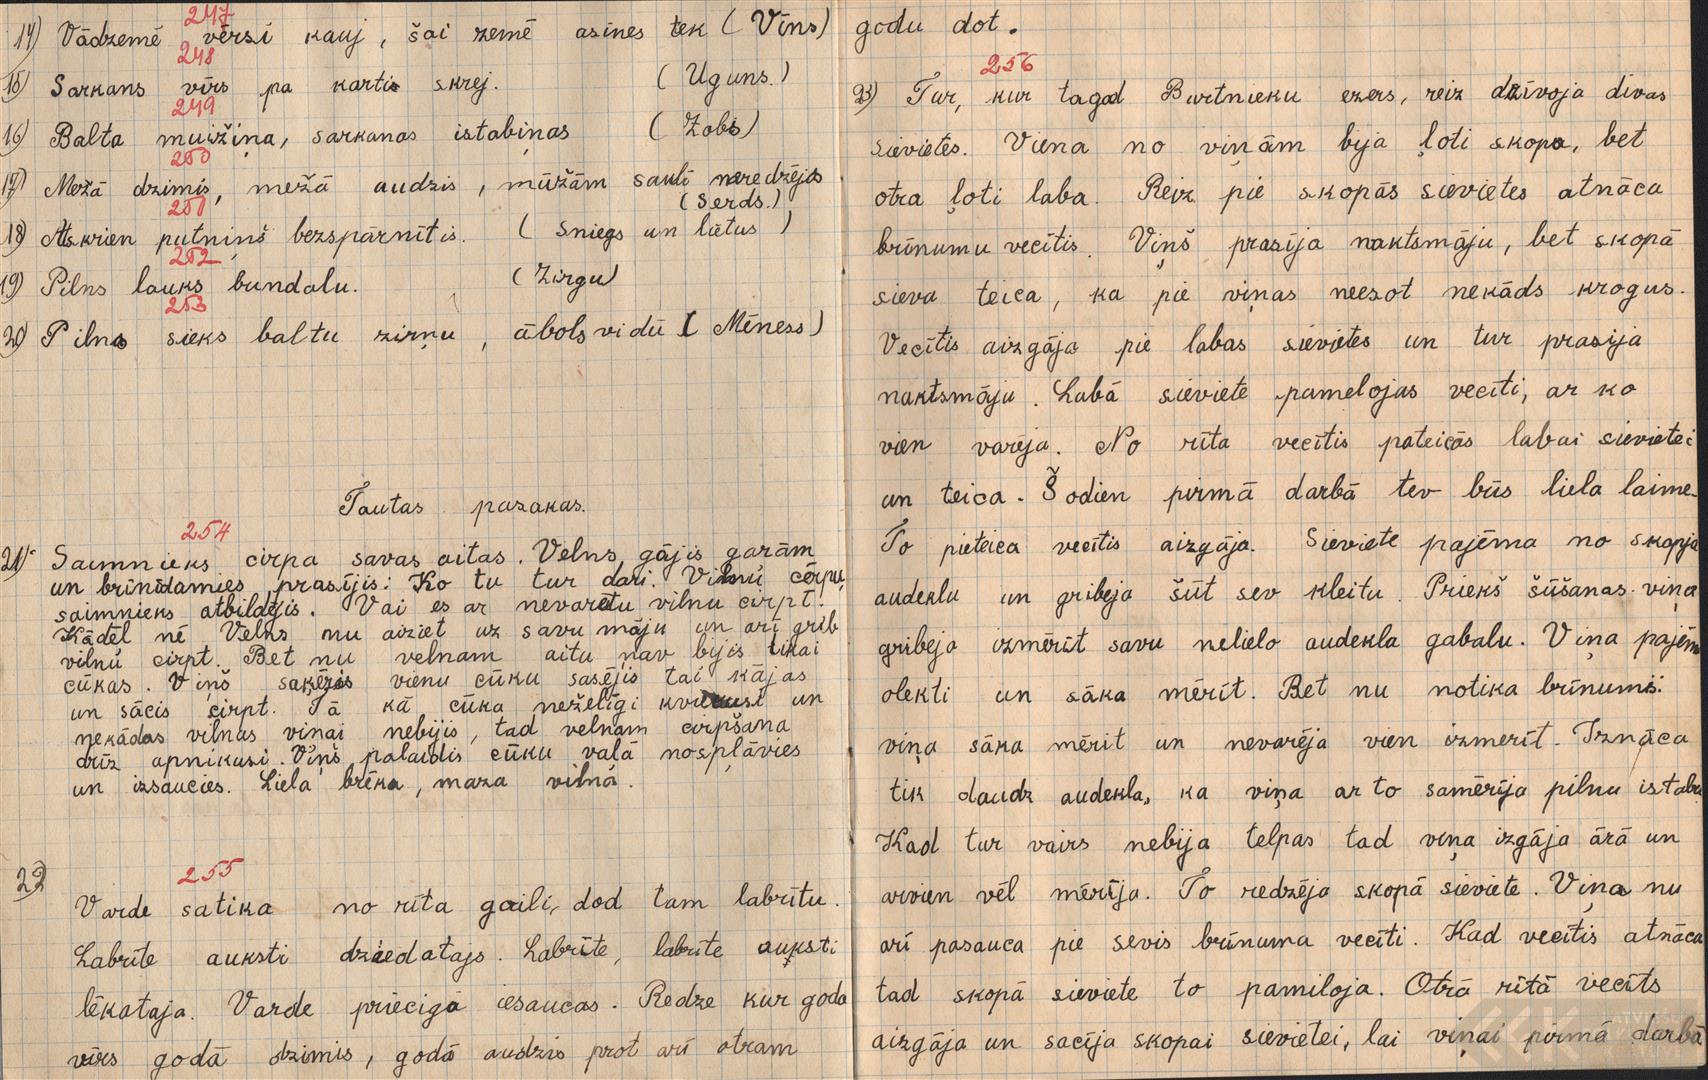 247
14) Vādzemē vērsi kauj, šai zemē asines tek (Vīns)
248
15) Sarkans vīrs pa kartis skrej. (Uguns.)
249
16) Balta muižiņa, sarkanas istabiņas (Zobi)
250
17) Mežā dzimis, mežā audzis, mūžām sauli neredzējis
(Serds.)
251
18) Atskrien putniņš bezspārnītis. (Sniegs un lietus)
252
19) Pilns lauks bundalu. (Zirgu)
253
20) Pilns sieks baltu zirņu, ābols vidū (Mēness)
Tautas pasakas.
254
21) Saimnieks cirpa savas aitas. Velns gājis garām
un brīnīdamies prasījis: Ko tu tur dari. Vilnu cērpu,
saimnieks atbildējis. Vai es ar nevarētu vilnu cirpt.
Kādēl nē Velns nu aiziet uz savu māju un arī grib
vilnu cirpt. Bet nu velnam aitu nav bijis tikai
cūkas. Viņš saķēris vienu cūku sasējis tai kājas
un sācis cirpt. Tā kā cūka neželīgi un
nekādas vilnas viņai nebijis, tad velnam cirpšana
drīz apnikusi. Viņš palaidis cūku vaļā nospļāvies
un izsaucies. Liela brēka, maza vilna.
255
22) Varde satika no rīta gaili, dod tam labrītu.
Labrīte auksti dziedatajs. Labrīte, labrīte auksti
lēkataja. Varde priecīgā iesaucas. Redze kur goda
vīrs godā dzimis, godā audzis prot arī otram
godu dot.
256
23) Tur, kur tagad Burtnieku ezers, reiz dzīvoja divas
sievietes. Viena no viņām bija ļoti skopa, bet
otra ļoti laba. Reiz pie skopās sievietes atnāca
brīnumu vecītis. Viņš prasīja naktsmāju, bet skopā
sieva teica, ka pie viņas neesot nekāds krogus.
Vecītis aizgāja pie labas sievietes un tur prasija
naktsmāju. Labā sieviete pamelojas vecīti, ar ko
vien varēja. No rīta vecītis pateicās labai sievietei
un teica. Šodien pirmā darbā tev būs liela laime.
To pieteica vecītis aizgāja. Sieviete pajēma no skapja
audeklu un gribeja šūt sev kleitu. Priekš šūšanas viņa
gribeja izmērīt savu nelielo audekla gabalu. Viņa pajēm
olekti un sāka mērīt. Bet nu notika brīnums:
viņa sāka mērit un nevarēja vien izmerīt. Iznāca
tik daudz audekla, ka viņa ar to samērīja pilnu istabu
Kad tur vairs nebija telpas tad viņa izgāja ārā un
arvien vēl mērīja. To redzēja skopā sieviete. Viņa nu
arī pasauca pie sevis brīnuma vecīti. Kad vecītis atnāca
tad skopā sieviete to pamiloja. Otrā rītā vecīts
aizgāja un sacīja skopai sievietei, lai viņai pirmā darbā